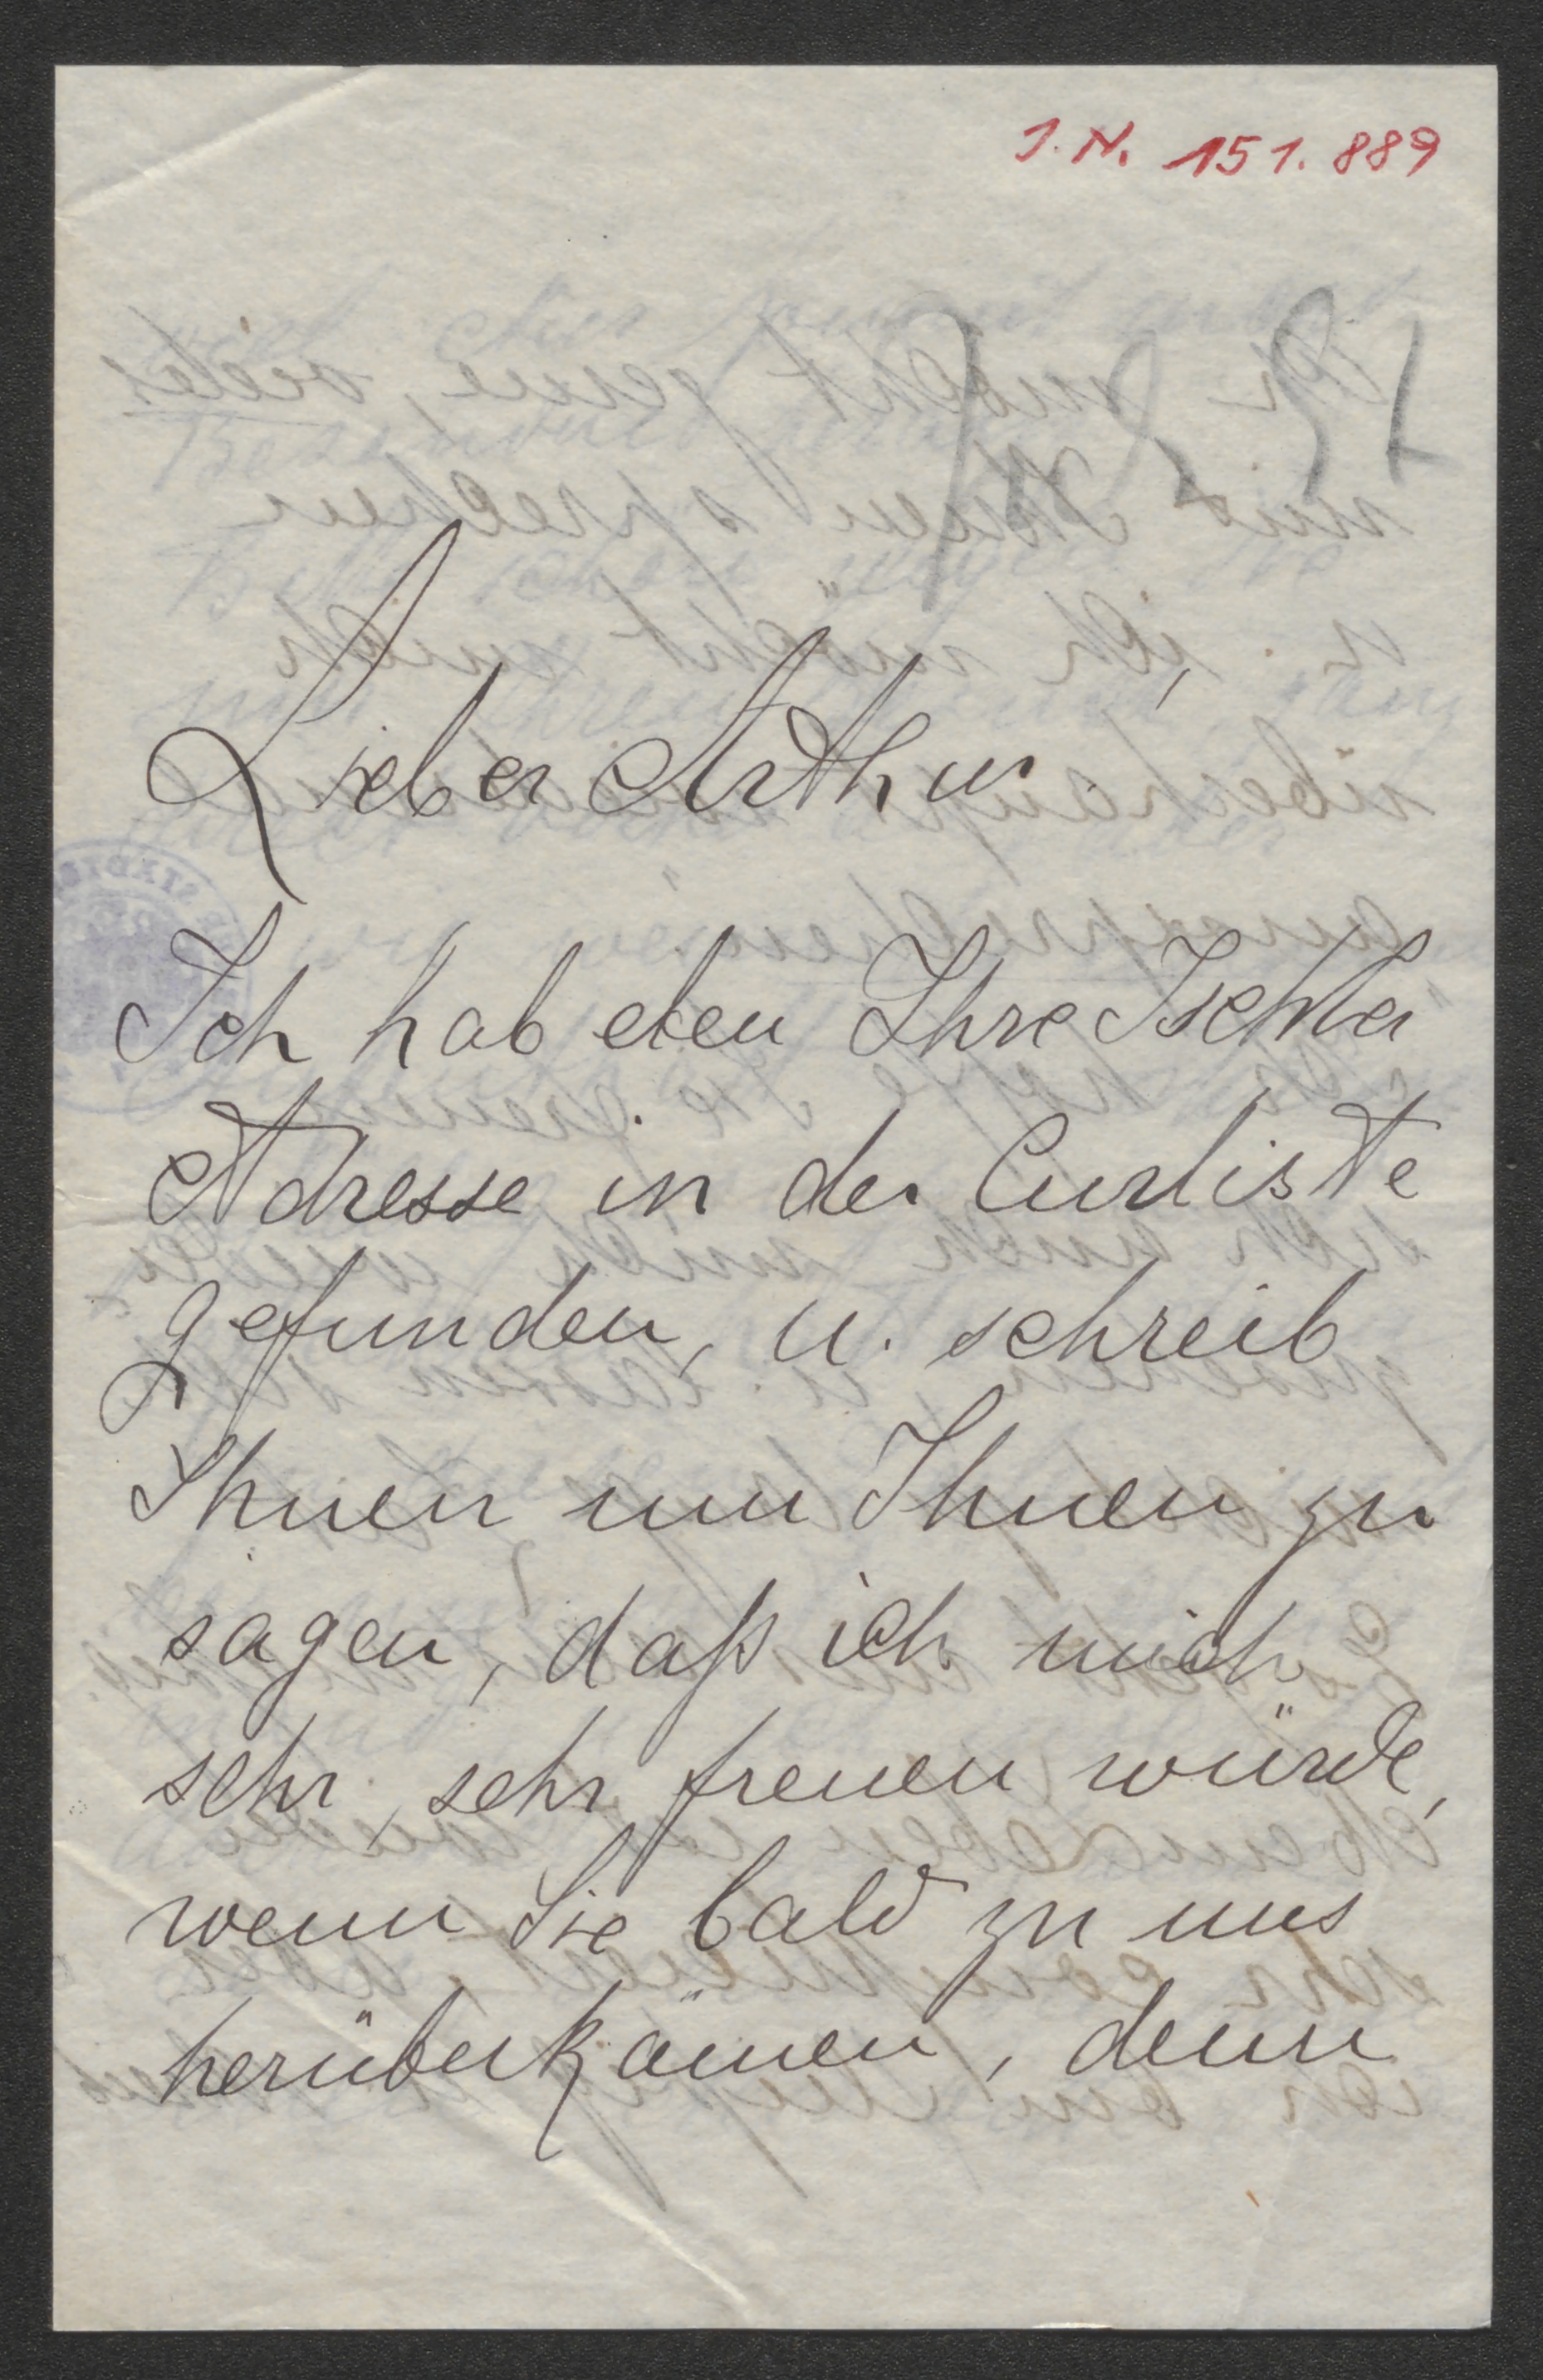 J. N. 151.889
Lieber Arthur
Ich hab eben Ihre Ischler
Adresse in der Curliste
gefunden, u. schreib
Ihnen um Ihnen zu
sagen, daß ich mich
sehr, sehr freuen würde,
wenn Sie bald zu uns
herüberkämen, denn